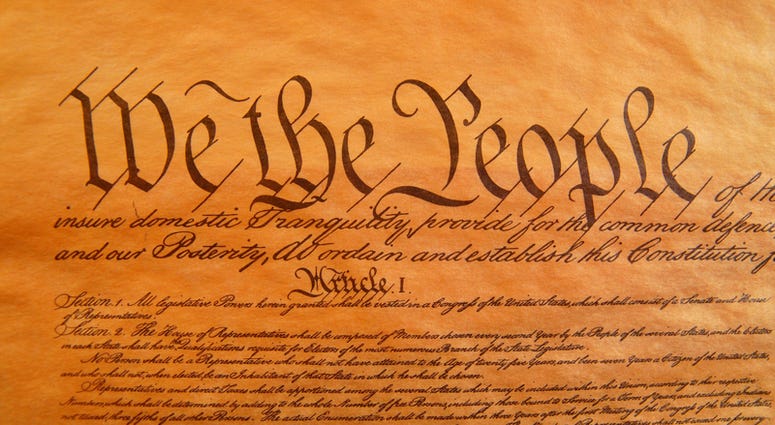 We the People of the
insure domestic Tranquility, provide for the common defence
and our Posterity, do ordain and establish this Constitution f
Article. I.
Section. 1. All legislative Powers herein granted shall be vested in a Congress of the United States, which shall consist of a Senate and House
of Representatives.
Section. 2. The House of Representatives shall be composed of Members chosen every second Year by the People of the several States, and the Electors
in each State shall have the Qualifications requisite for Electors of the most numerous Branch of the State Legislature.
No Person shall be a Representative who shall not have attained to the Age of twenty five Years, and been seven Years a Citizen of the United States,
and who shall not, when elected, be an Inhabitant of that State in which he shall be chosen.
Representatives and direct Taxes shall be apportioned among the several States which may be included within this Union, according to their respective
Numbers, which shall be determined by adding to the whole Number of free Persons, including those bound to Service for a Term of Years, and excluding Indians
not taxed, three fifths of all other Persons. The actual Enumeration shall be made within three Years after the first Meeting of the Congress of the United States,